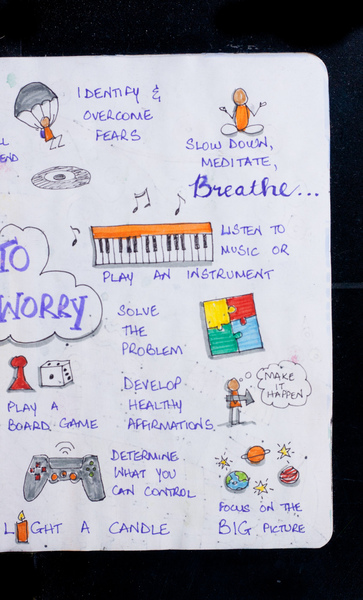 IDENTIFY &
OVERCOME
FEARS
SLOW DOWN,
MEDITATE,
Breathe...
END
LISTEN TO
MUSIC OR
PLAY AN INSTRUMENT
TO
WORRY
SOLVE
THE
PROBLEM
PLAY A
BOARD GAME
DEVELOP
HEALTHY
AFFIRMATIONS
MAKE
IT
HAPPEN
DETERMINE
WHAT YOU
CAN CONTROL
FOCUS ON THE
BIG PICTURE
LIGHT A CANDLE